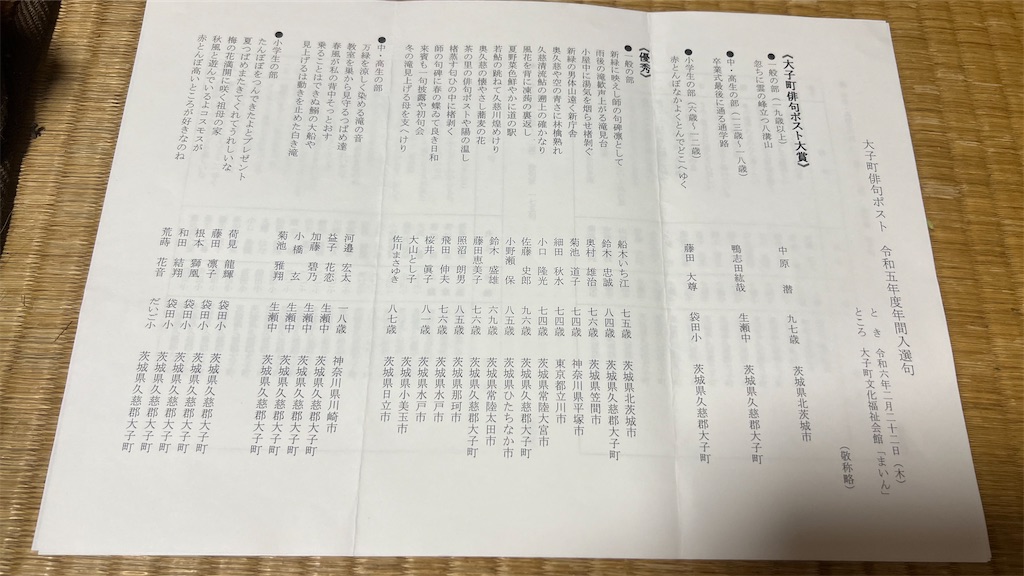 大子町俳句ポスト 令和五年度年間入選句
とき 令和六年二月二十二日（木）
ところ 大子町文化福祉会館「まいん」
（敬称略）
《大子町俳句ポスト大賞》
●一般の部（一九歳以上）
忽ちに雲の峰立つ八溝山 中原 潜 九七歳 茨城県北茨城市
●中・高生の部（一三歳～一八歳）
卒業式最後に通る通学路 鴨志田紘哉 生瀬中 茨城県久慈郡大子町
●小学生の部（六歳～一二歳）
赤とんぼなかよくとんでどこへゆく 藤田 大尊 袋田小 茨城県久慈郡大子町
《優秀》
●一般の部
新緑に映えし師の句碑凛として 船木いち江 七五歳 茨城県北茨城市
雨後の滝歓声上がる滝見台 鈴木 忠誠 八四歳 茨城県久慈郡大子町
小屋中に湯気を烟らせ楮剥ぐ 奥村 雄治 七六歳 茨城県笠間市
新緑の男体山遠く新庁舎 菊池 道子 七四歳 神奈川県平塚市
奥久慈や空の青さに林檎熟れ 細田 秋水 七四歳 東京都立川市
久慈清流鮎の遡上の確かなり 小口 隆光 七四歳 茨城県常陸大宮市
風花を背に凍蒟の裏返し 佐藤 史郎 七六歳 茨城県久慈郡大子町
夏野菜色鮮やかに道の駅 小野瀬 保 八五歳 茨城県ひたちなか市
若鮎の跳ねて久慈川煌めけり 鈴木 盛雄 六九歳 茨城県常陸太田市
奥久慈の懐やさし蕎麦の花 藤田恵美子 七六歳 茨城県久慈郡大子町
茶の里の俳句ポストや陽の温し 照沼 朗男 八五歳 茨城県那珂市
楮蒸す匂ひの中に楮剥く 飛田 伸夫 七六歳 茨城県水戸市
師の句碑に春の蝶みて良き日和 桜井 眞子 八一歳 茨城県水戸市
来賓も一句披露や初句会 大山とし子 茨城県小美玉市
冬の滝見上げる母を支へけり 佐川まさゆき 八七歳 茨城県日立市
●中・高生の部
万緑を涼しく染める滝の音 河邉 宏太 一八歳 神奈川県川崎市
教室を巣から見守るつばめ達 益子 花恋 生瀬中 茨城県久慈郡大子町
春風が私の背中そっとおす 加藤 碧乃 生瀬中 茨城県久慈郡大子町
乗ることはできぬ鰯の大船や 小橋 玄 生瀬中 茨城県久慈郡大子町
見上げるは動きを止めた白き滝 菊池 雅翔 生瀬中 茨城県久慈郡大子町
●小学生の部
たんぽぽをつんできたよとプレゼント 荷見 龍輝 袋田小 茨城県久慈郡大子町
夏つばめまたきてくれてうれしいな 藤田 凛子 袋田小 茨城県久慈郡大子町
梅の花満開に咲く祖母の家 根本 獅凰 袋田小 茨城県久慈郡大子町
秋風と遊んでいるよコスモスが 和田 結翔 袋田小 茨城県久慈郡大子町
赤とんぼ高いところが好きなのね 荒蒔 花音 だいご小 茨城県久慈郡大子町